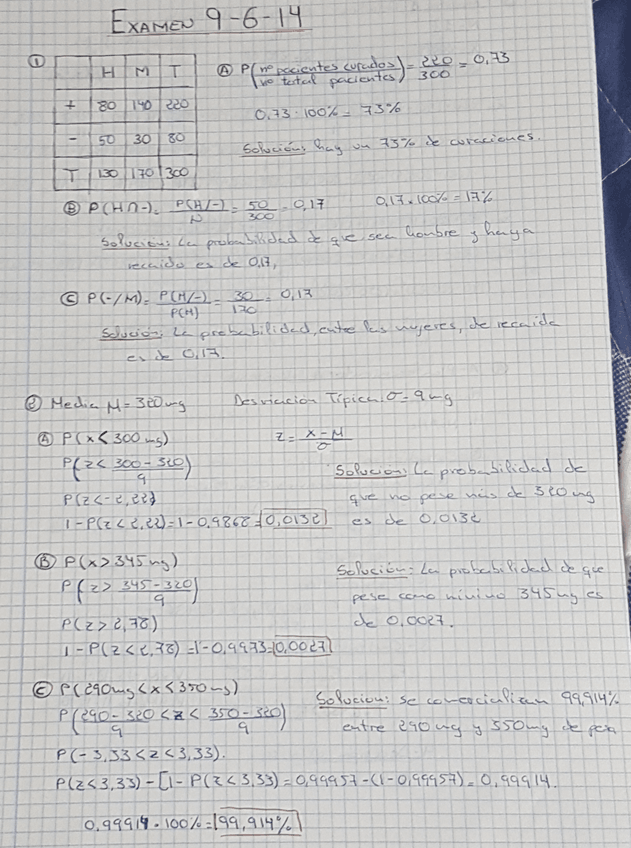 EXAMEN 9-6-14
① H M T
+ 80 140 220
- 50 30 80
T 130 170 300
Ⓐ P(nº pacientes curados / nº total pacientes) = 220/300 = 0,73
0,73 · 100% = 73%
Solución: hay un 73% de curaciones.
Ⓑ P(H∩-) = P(H/-)/N = 50/300 = 0,17 0,17 · 100% = 17%
Solución: La probabilidad de que sea hombre y haya
recaido es de 0,17,
Ⓒ P(-/M) = P(M/-)/P(M) = 30/170 = 0,17
Solución: La probabilidad, entre las mujeres, de recaida
es de 0,17.
② Media M = 320mg Desviación Típica: σ = 9mg
Ⓐ P(x < 300 mg) z = x-M/σ
P(z < 300-320/9)
P(z < -2,22)
1-P(z < 2,22) = 1-0,9868 = 0,0132
Solución: La probabilidad de
que no pese más de 320mg
es de 0,0132
Ⓑ P(x > 345mg)
P(z > 345-320/9)
P(z > 2,78)
1-P(z < 2,78) = 1-0,9973 = 0,0027
Solución: La probabilidad de que
pese como mínimo 345mg es
de 0,0027.
Ⓒ P(290mg < x < 350mg)
P(290-320/9 < z < 350-320/9)
P(-3,33 < z < 3,33).
P(z < 3,33) - [1-P(z < 3,33) = 0,99957 - (1-0,99957) = 0,99914.
0,99914 · 100% = 99,914%
Solución: se comercializan 99,914%
entre 290mg y 350mg de peso